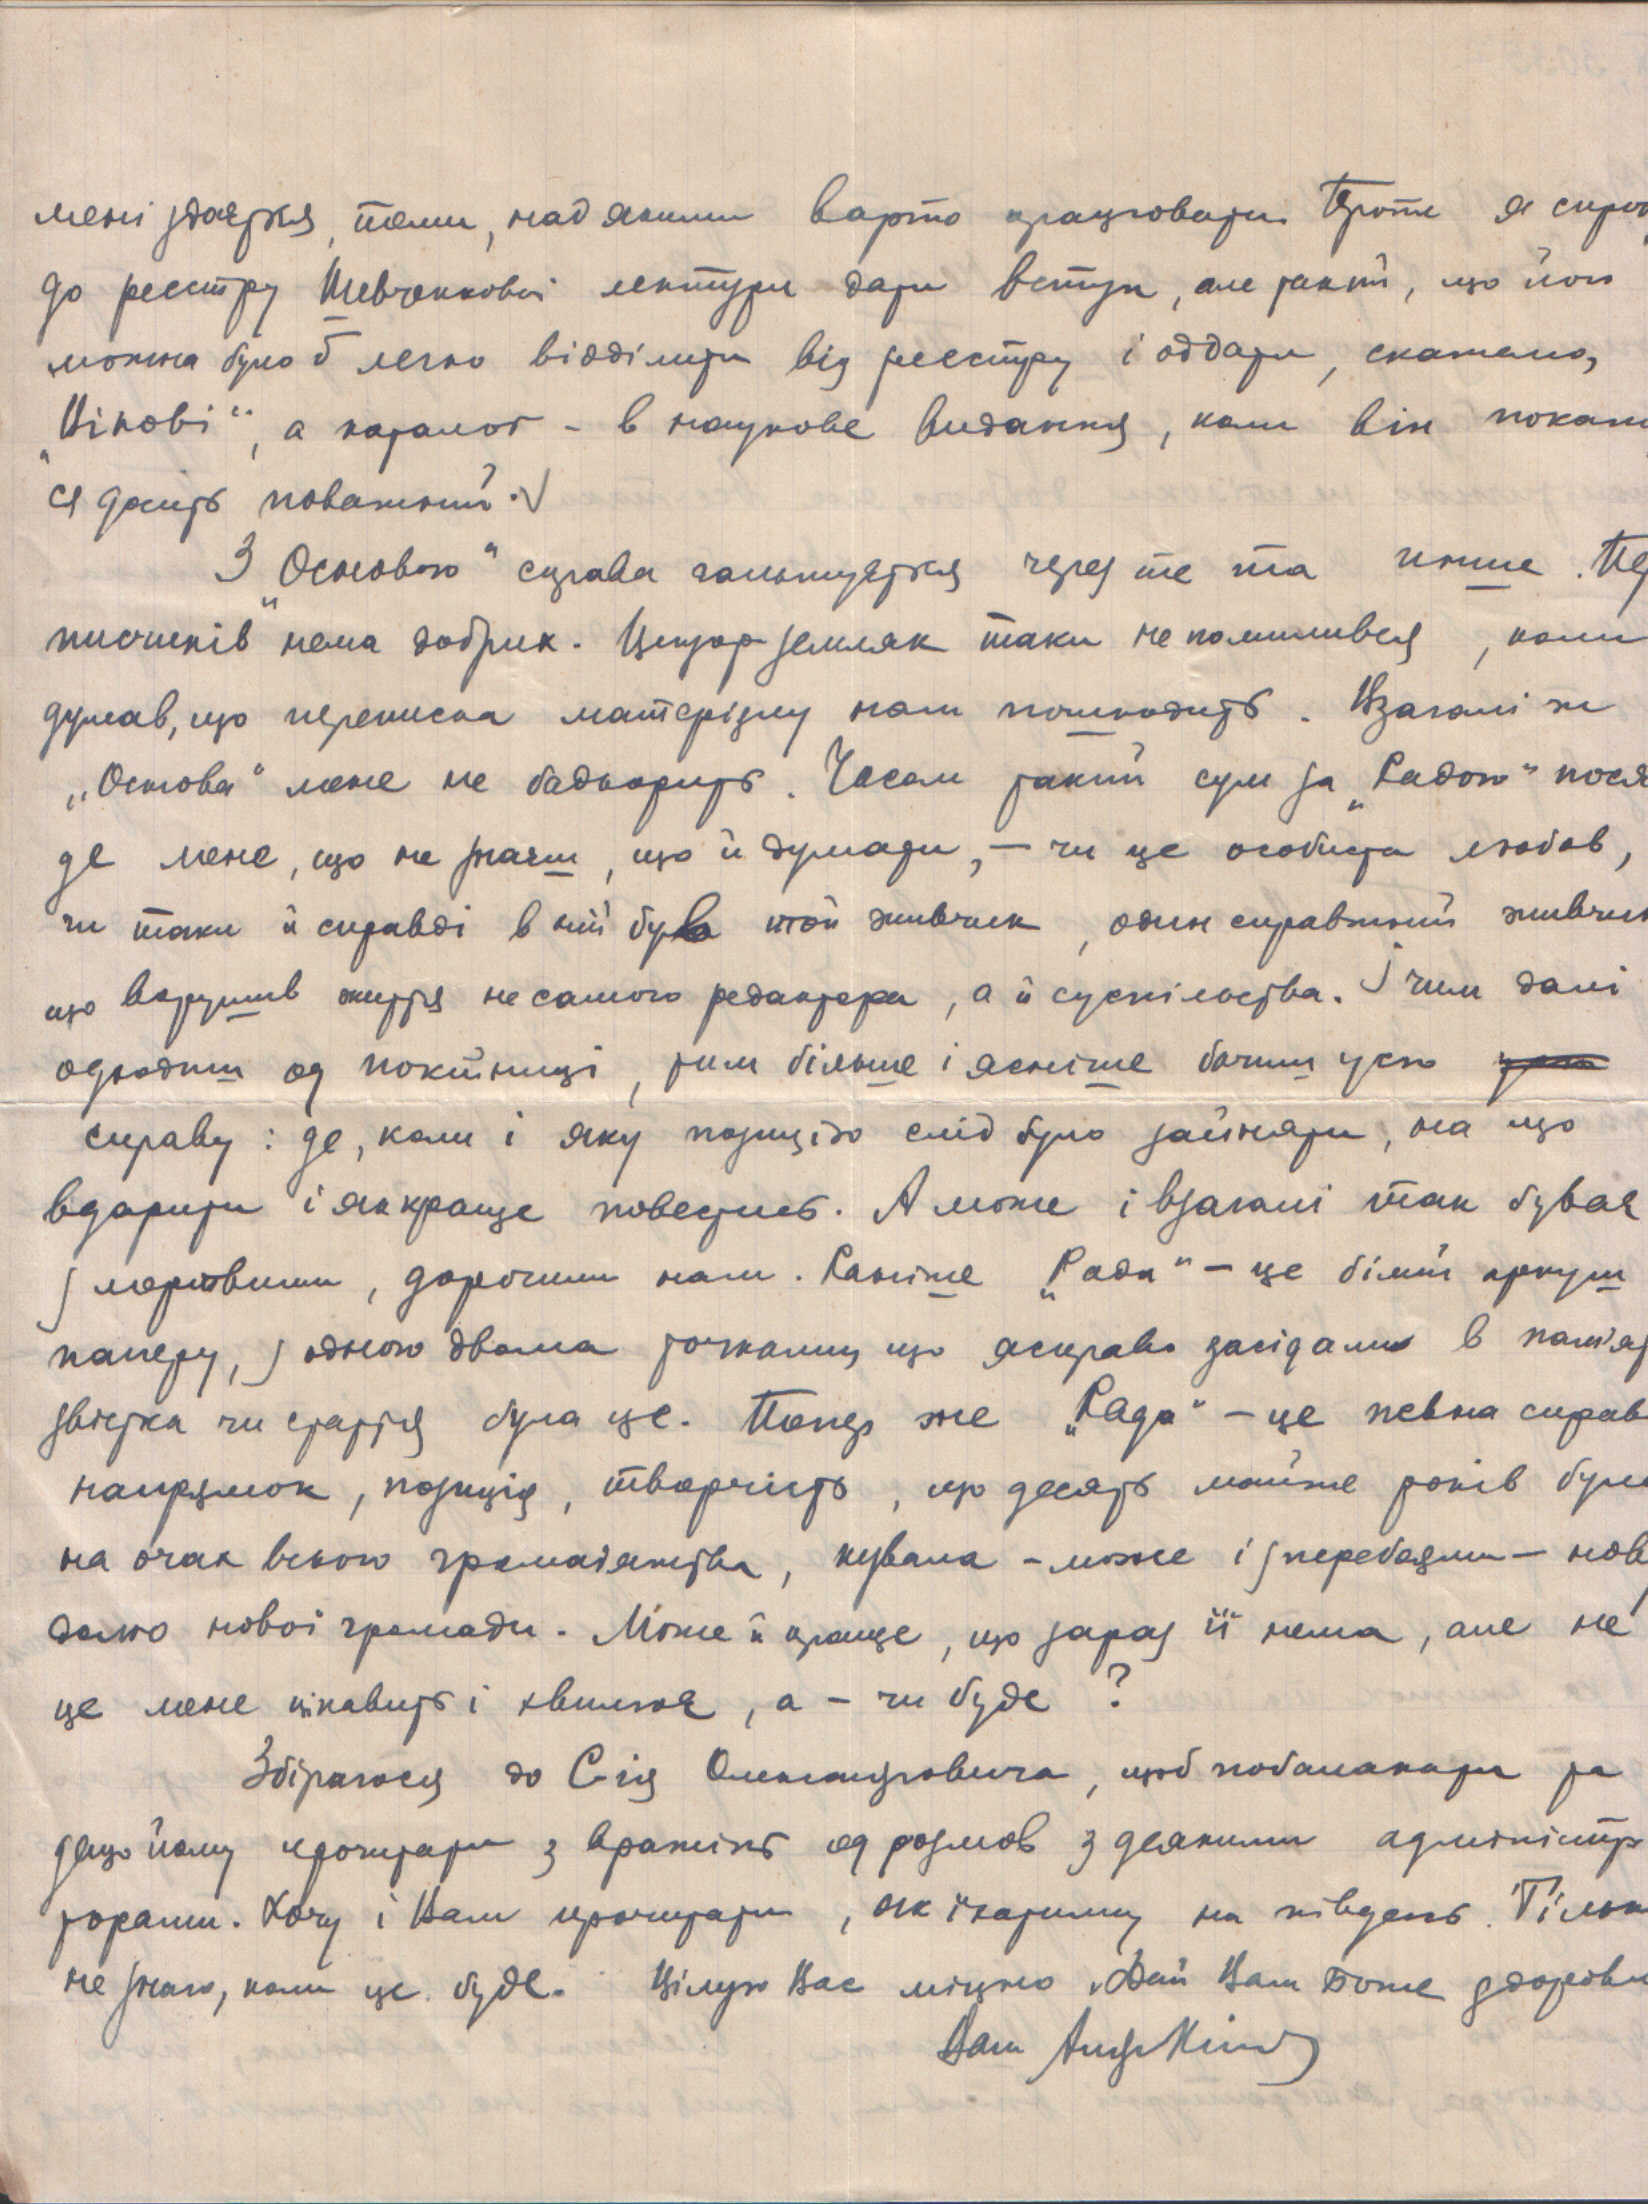 мені здається, теми, над якими варто працювати. Проте я
до реєстру Шевченкової лектури дати вступ, але такий, що його
можна було б легко відділити від реєстру і оддати, скажемо,
„Нікові", а каталог – в наукове видання, коли він
ся досить поважний.
З „Основою" справа гальмується через те та инше.
писчиків нема добрих. Цензор земляк таки не помилився, коли
думав, що переписка матеріялу нам пошкодить. Взагалі ж
„Основа" мене не бадьорить. Часом такий сум за „Радою" пося
де мене, що не знаєш, що й думати, – чи це особиста любов,
чи таки й справді в ній був той живчик, один справжній живчик
що ворушив життя не самого редактора, а й суспільства. І чим далі
одходиш од покійниці, тим більше і ясніше бачиш усю
справу: де, коли і яку позицію слід було зайняти, на що
вдарити і як краще повестись. А може і взагалі так буває
з мертвими, дорогими нам. Раніше „Рада" – це білий аркуш
паперу, з одною двома точками, що яскраво засідали в памʼят
звістка чи стаття була це. Тепер же „Рада" – це певна справ
напрямок, позиція, творчість, що десять майже років була
на очах всього громадянства, кувала – може і з перебоями – нов
долю нової громади. Може й краще, що зараз її нема, але не
це мене цікавить і хвилює, а – чи буде?
Збіраюся до Є-ія Олександровича, щоб побалакати та
дещо йому прочитати з вражінь од розмов з деякими адміністр
торами. Хочу і Вам прочитати, як їхатиму на південь. Тільки
не знаю, коли це буде. Цілую Вас міцно. Дай Вам Боже здоровля
Ваш